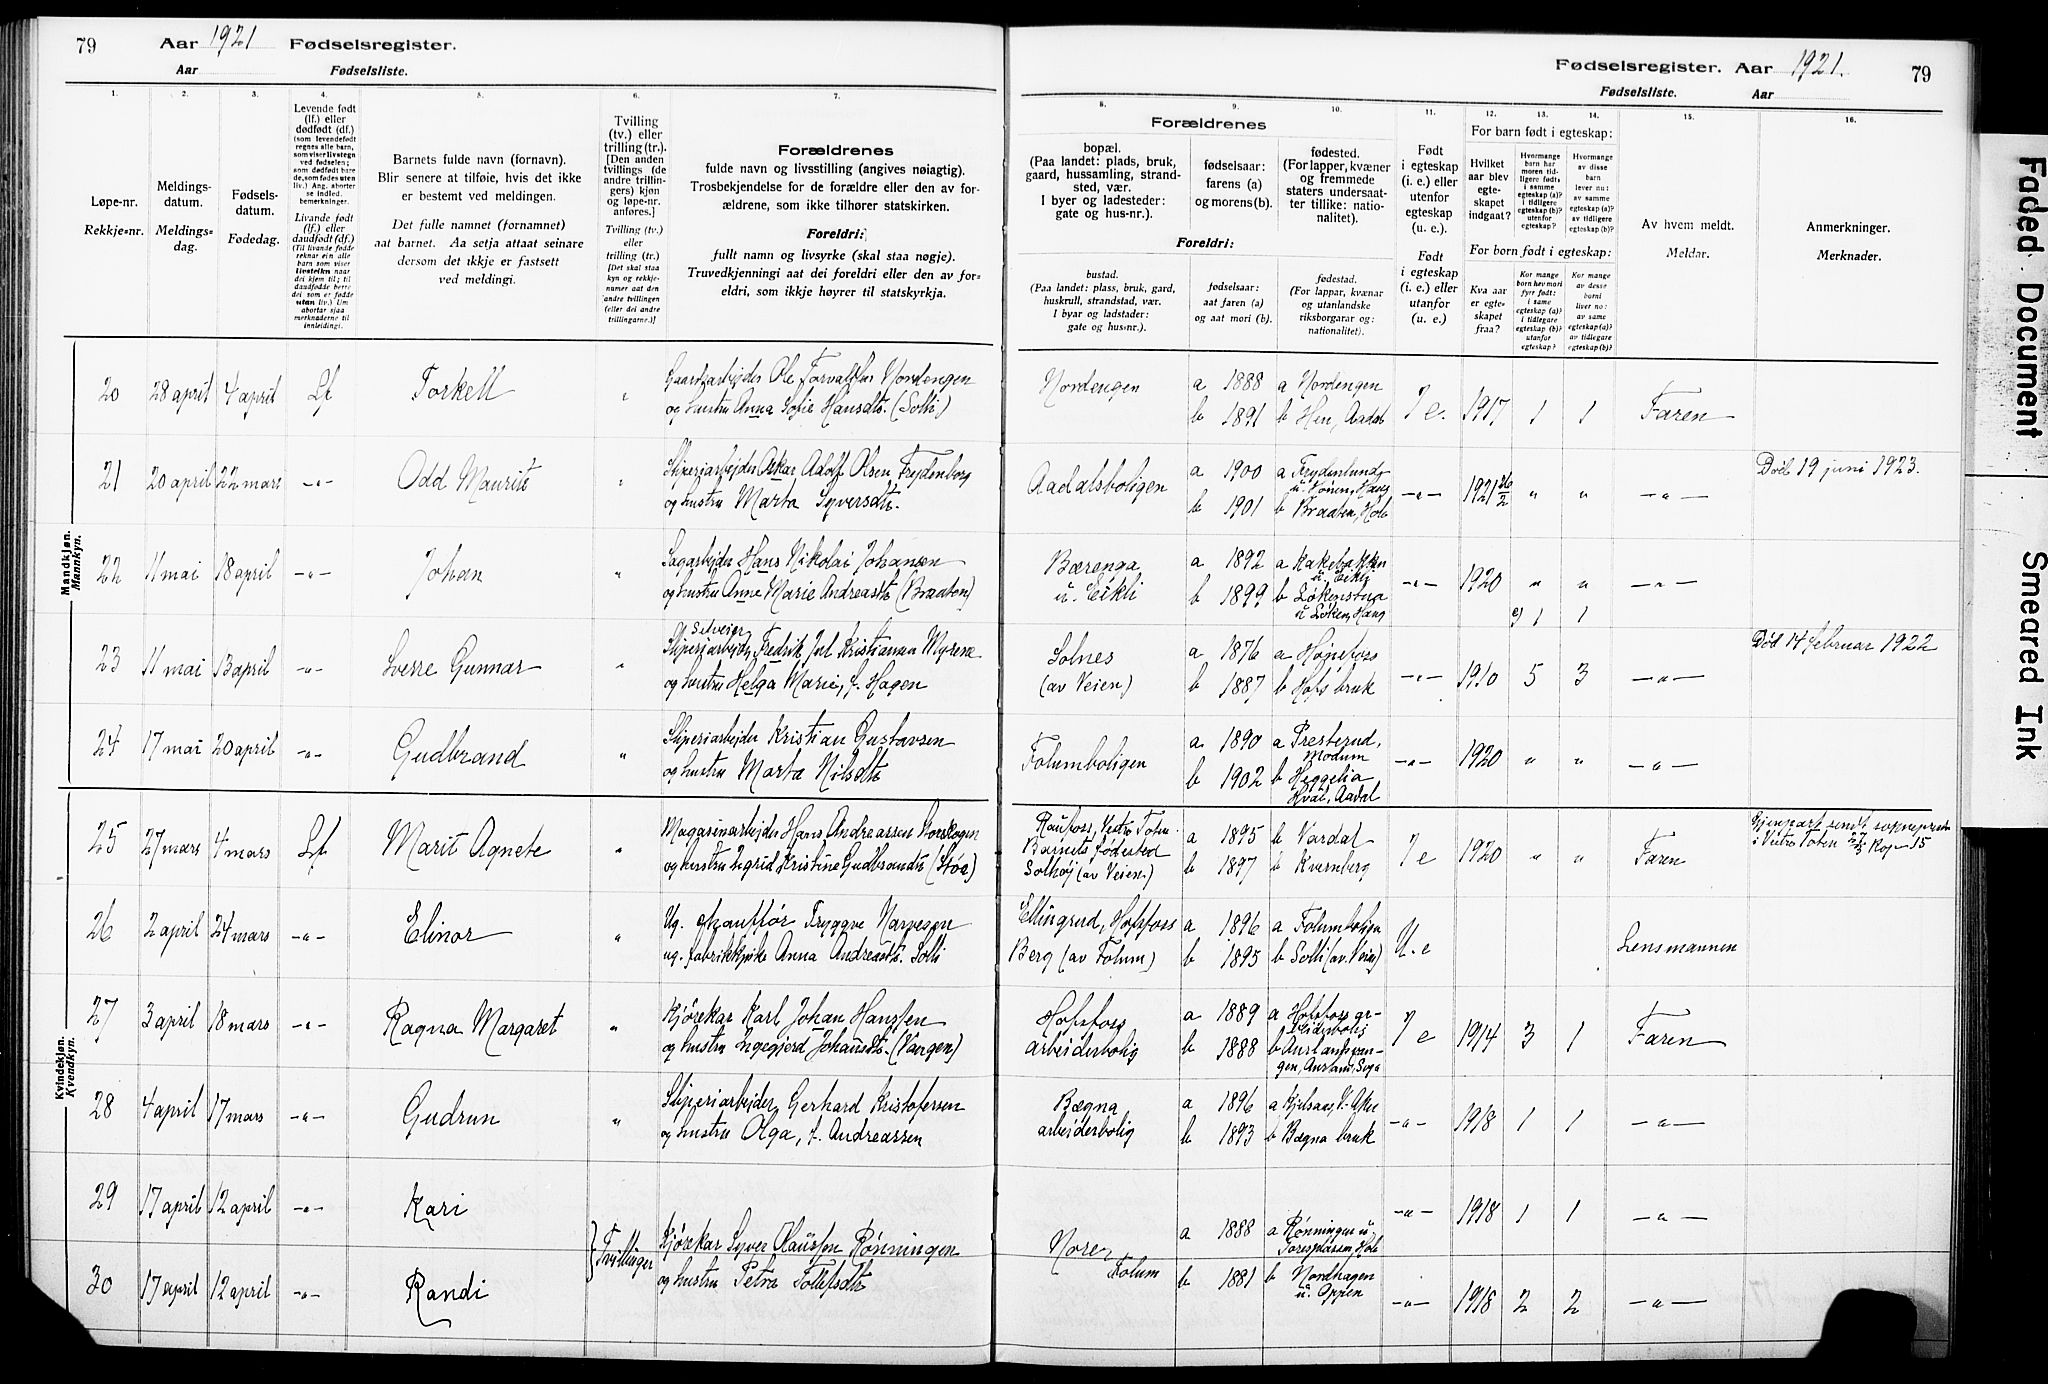 79 Aar 1921 Fødselsregister.
Aar Fødselsliste.
Fødselsregister. Aar 1921. 79
Fødselsliste. Aar
1. 2. 3. 4. 5. 6. 7.
Løpe-nr.
Rekkje-nr.
Meldings-
datum.
Meldings-
dag.
Fødsels-
datum.
Fødedag.
Levende født
(lf.) eller
dødfødt (df.)
(som levendefødt
regnes alle barn,
som viser livstegn
ved fødselen;
som dødfødt bare
de, som fødes uten
liv.) Ang. aborter
se indled.
bemerkninger.
Livande født
(lf.) eller
daudfødt (df.)
(Til livande fødde
reknar ein alle
born som viser
livsteikn naar
dei kjem til; til
daudfødde berre
dei som er fødde
utan liv.) Um
abortar sjaa
merknaderne til
innleidingi.
Barnets fulde navn (fornavn).
Blir senere at tilføie, hvis det ikke
er bestemt ved meldingen.
Det fulle namnet (fornamnet)
aat barnet. Aa setja attaat seinare
dersom det ikkje er fastsett
ved meldingi.
Tvilling
(tv.) eller
trilling (tr.).
[Den anden
tvillings (de
andre trillin-
gers) kjøn
og løpe-nr.
anføres.]
Tvilling (tv.)
eller
trilling (tr.)
[Det skal staa
kyn og rekkje-
numer aat den
andre tvillingen
(eller dei andre
trillingarne.)]
Forældrenes
fulde navn og livsstilling (angives nøiagtig).
Trosbekjendelse for de forældre eller den av for-
ældrene, som ikke tilhører statskirken.
Foreldri:
fullt namn og livsyrke (skal staa nøgje).
Truvedkjenningi aat dei foreldri eller den av for-
eldri, som ikkje høyrer til statskyrkja.
8. 9. 10. 11. 12. 13. 14. 15. 16.
Forældrenes
bopæl.
(Paa landet: plads, bruk,
gaard, hussamling, strand-
sted, vær.
I byer og ladesteder:
gate og hus-nr.).
fødselsaar:
farens (a)
og morens (b).
fødested.
(For lapper, kvæner
og fremmede
staters undersaat-
ter tillike: natio-
nalitet).
Foreldri:
bustad.
(Paa landet: plass, bruk, gard,
huskrull, strandstad, vær.
I byar og ladstader:
gate og hus-nr.).
fødselsaar:
aat faren (a)
og aat mori (b).
fødestad.
(For lappar, kvænar
og utanlandske
riksborgarar og:
nationalitet).
Født
i egteskap
(i. e.) eller
utenfor
egteskap
(u. e.).
Født
i egteskap
(i. e.) eller
utanfor
egteskap
(u. e.)
For barn født i egteskap:
Hvilket
aar blev
egte-
skapet
indgaat?
Hvormange
barn har
moren tid-
ligere født:
i samme
egteskap (a)?
i tidligere
egteskap (b)?
utenfor
egteskap?
Hvormange
av disse
barn
lever nu:
av samme
egteskap (a)?
av tidligere
egteskap (b)?
For born født i egteskap:
Kva aar
er egte-
skapet
fraa?
Kor mange
born hev mori
fyrr født:
i same
egteskap (a)?
i tidlegare
egteskap (b)?
utanfor
egteskap?
Kor mange
av desse
borni
liver no:
av same
egteskap (a)?
av tidlegare
egteskap (b)?
Av hvem meldt.
Meldar.
Anmerkninger.
Merknader.
Mandkjøn.
Mannkyn.
20 28 april 4 april Lf Torkell " Gaardsarbejder Ole Torvaldsen Nordengen
og hustru Anna Sofie Hansdtr. (Solli) Nordengen a 1888 a Nordengen
b 1891 b Hen, Aadal I e. 1917 1 1 Faren
21 20 april 22 mars -"- Odd Maurits " Sliperiarbejder Oskar Adolf Olsen Frydenborg
og hustru Marta Syversdtr. Aadalsboligen a 1900 a Frydenlund
b 1901 b Braaten, Hole -"- 1921 26/2 " " -"- Død 19 juni 1923.
22 11 mai 18 april -"- Johan " Sagarbejder Hans Nikolai Johansen
og hustru Anne Marie Andreasdtr (Braaten) Bærenga
u. Eikli a 1892 a Kakebakken
u. Eikli
b 1899 b Løkenstua
u Løken, Haug -"- 1920 " " -"-
1 1
23 11 mai 13 april -"- Sverre Gunnar " Sliperiarbejder Fredrik Juel Kristiansen Myrene
og hustru Helga Marie, f. Hagen Solnes
(av Veien) a 1876 a Hønefoss
b 1887 b Hofs bruk -"- 1910 5 3 -"- Død 14 februar 1922
24 17 mai 20 april -"- Gudbrand " Sliperiarbejder Kristian Gustavsen
og hustru Marta Nilsdtr Folumboligen a 1890 a Presterud,
Modum
b 1902 b Heggelia
Hval, Aadal -"- 1920 " " -"-
Kvindekjøn.
Kvendkyn.
25 27 mars 4 mars Lf Marit Agnete " Magasinarbejder Hans Andreassen Norskogen
og hustru Ingrid Kristine Gudbrandsdtr (Støa) Raufoss, Vestre Toten.
Barnets fødested
Solhøj (av Veien.) a 1895 b Vardal
b 1897 b Kvernberg I e 1920 " " Faren Gjenpart sendt sogneprest
i Vestre Toten
26 2 april 24 mars -"- Elinor " Ug. chauffør Tryggve Narvesen
ug. fabrikkpike Anna Andreasdtr. Solli Ellingrud, Hofsfoss
Berg (av Folum) a 1896 a Folumboligen
b 1895 b Solli (av Veien) U. e Lensmannen
27 3 april 18 mars -"- Ragna Margaret " Kjørekar Karl Johan Hanssen
og hustru Ingegjerd Johansdtr. (Vaengen) Hofsfoss
arbeiderbolig a 1889 a Hofsfoss ar-
beiderbolig
b 1888 b I e 1914 3 1 Faren
28 4 april 17 mars -"- Gudrun " Sliperiarbejder Gerhard Kristofersen
og hustru Olga, f. Andreassen Bægna
arbeiderbolig a 1896 a Kjelsaas, V. Aker
b 1893 b Bægna bruk -"- 1918 1 1 -"-
29 17 april 12 april -"- Kari -"- 1918 1 1 -"-
} Tvillinger Kjørekar Syver Olaussen Rønningen
og hustru Petra Tollefsdtr Nore,
Folum a 1888 a Rønningen u
b 1881 b Nordhagen
u. Oppen
30 17 april 12 april -"- Randi -"- 1918 2 2 -"-
Faded Document Smeared Ink